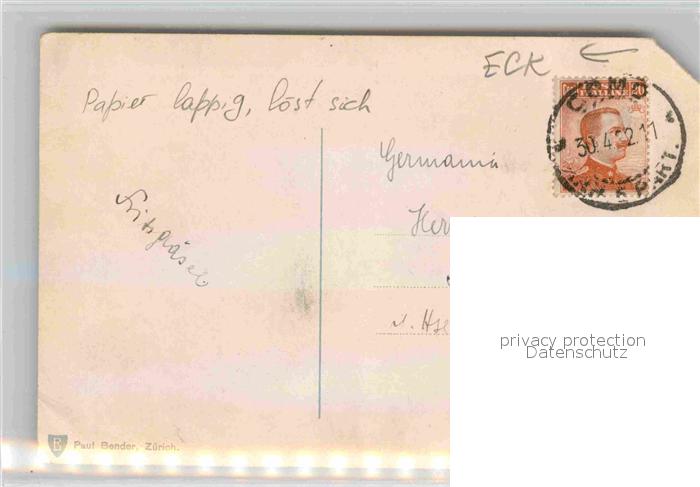 ECK
Papier lappig, löst sich
COMO
30.4.22.17
Germania
Her
v. Hse
privacy protection
Datenschutz
Paul Bender, Zürich.